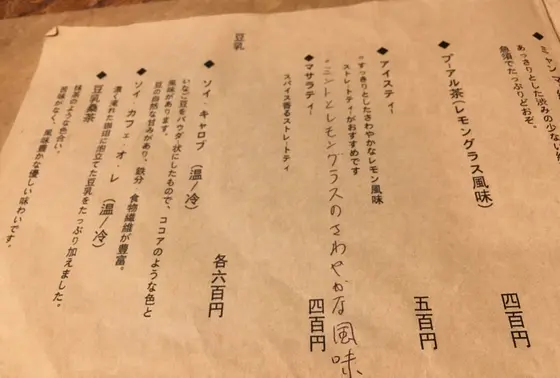 ◆ ミャン
あっさりとした渋みの少ない
急須でたっぷりどおぞ。
四百円
◆ プーアル茶(レモングラス風味)
五百円
◆ アイスティ
"すっきりとしたさわやかなレモン風味
ストレートティがおすすめです
"ミントとレモングラスのさわやかな風味
◆ マサラティ
四百円
スパイス香るストレートティ
豆乳
◆ ソイ・キャロブ (温/冷)
各六百円
いなご豆をパウダー状にしたもので、ココアのような色と
風味があります。
豆の自然な甘みがあり、鉄分、食物繊維が豊富。
◆ ソイ・カフェ・オ・レ (温/冷)
濃く淹れた珈琲に泡立てた豆乳をたっぷり加えました。
◆ 豆乳桑茶
抹茶のような色合い。
苦味がなく、風味豊かな優しい味わいです。